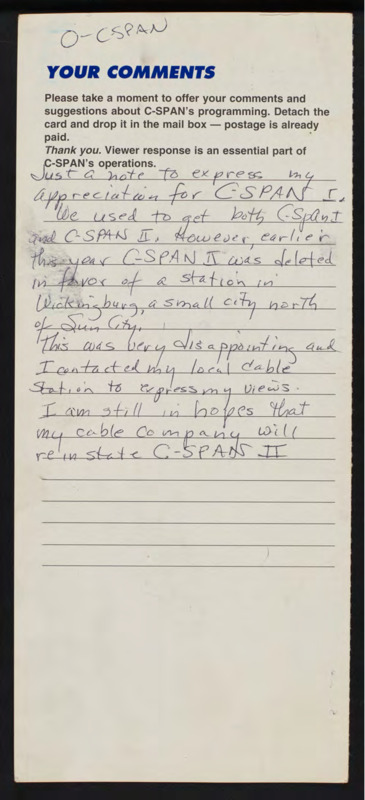 O-CSPAN
YOUR COMMENTS
Please take a moment to offer your comments and
suggestions about C-SPAN's programming. Detach the
card and drop it in the mail box — postage is already
paid.
Thank you. Viewer response is an essential part of
C-SPAN's operations.
Just a note to express my
appreciation for C-SPAN I.
We used to get both C-Span I
and C-SPAN II. However, earlier
this year C-SPAN II was deleted
in favor of a station in
Wickingburg, a small city north
of Sun City.
This was very disappointing and
I contacted my local cable
station to express my views.
I am still in hopes that
my cable company will
reinstate C-SPAN II